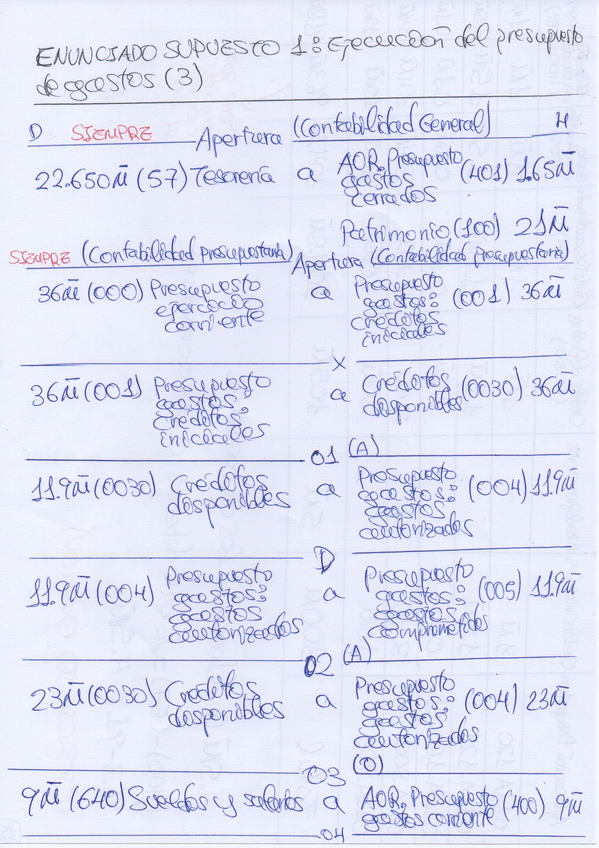 ENUNCIADO SUPUESTO 1: Ejecución del presupuesto
de gastos (3)
D SIEMPRE Apertura (Contabilidad General) H
22.650m (57) Tesorería a AOR. Presupuesto (401) 1.65m
gastos
cerrados
Patrimonio (100) 21m
SIEMPRE (Contabilidad presupuestaria) Apertura (Contabilidad presupuestaria)
36m (000) Presupuesto a Presupuesto (001) 36m
ejercicio gastos:
corriente créditos
iniciales
x
36m (001) Presupuesto a Créditos (0030) 36m
gastos: disponibles
créditos
iniciales
01 (A)
11.9m (0030) Créditos a Presupuesto (004) 11.9m
disponibles gastos:
gastos
autorizados
D
11.9m (004) Presupuesto a Presupuesto (005) 11.9m
gastos: gastos:
gastos gastos
autorizados comprometidos
02 (A)
23m (0030) Créditos a Presupuesto (004) 23m
disponibles gastos:
gastos
autorizados
03 (O)
9m (640) Sueldos y salarios a AOR. Presupuesto (400) 9m
gastos corriente
04